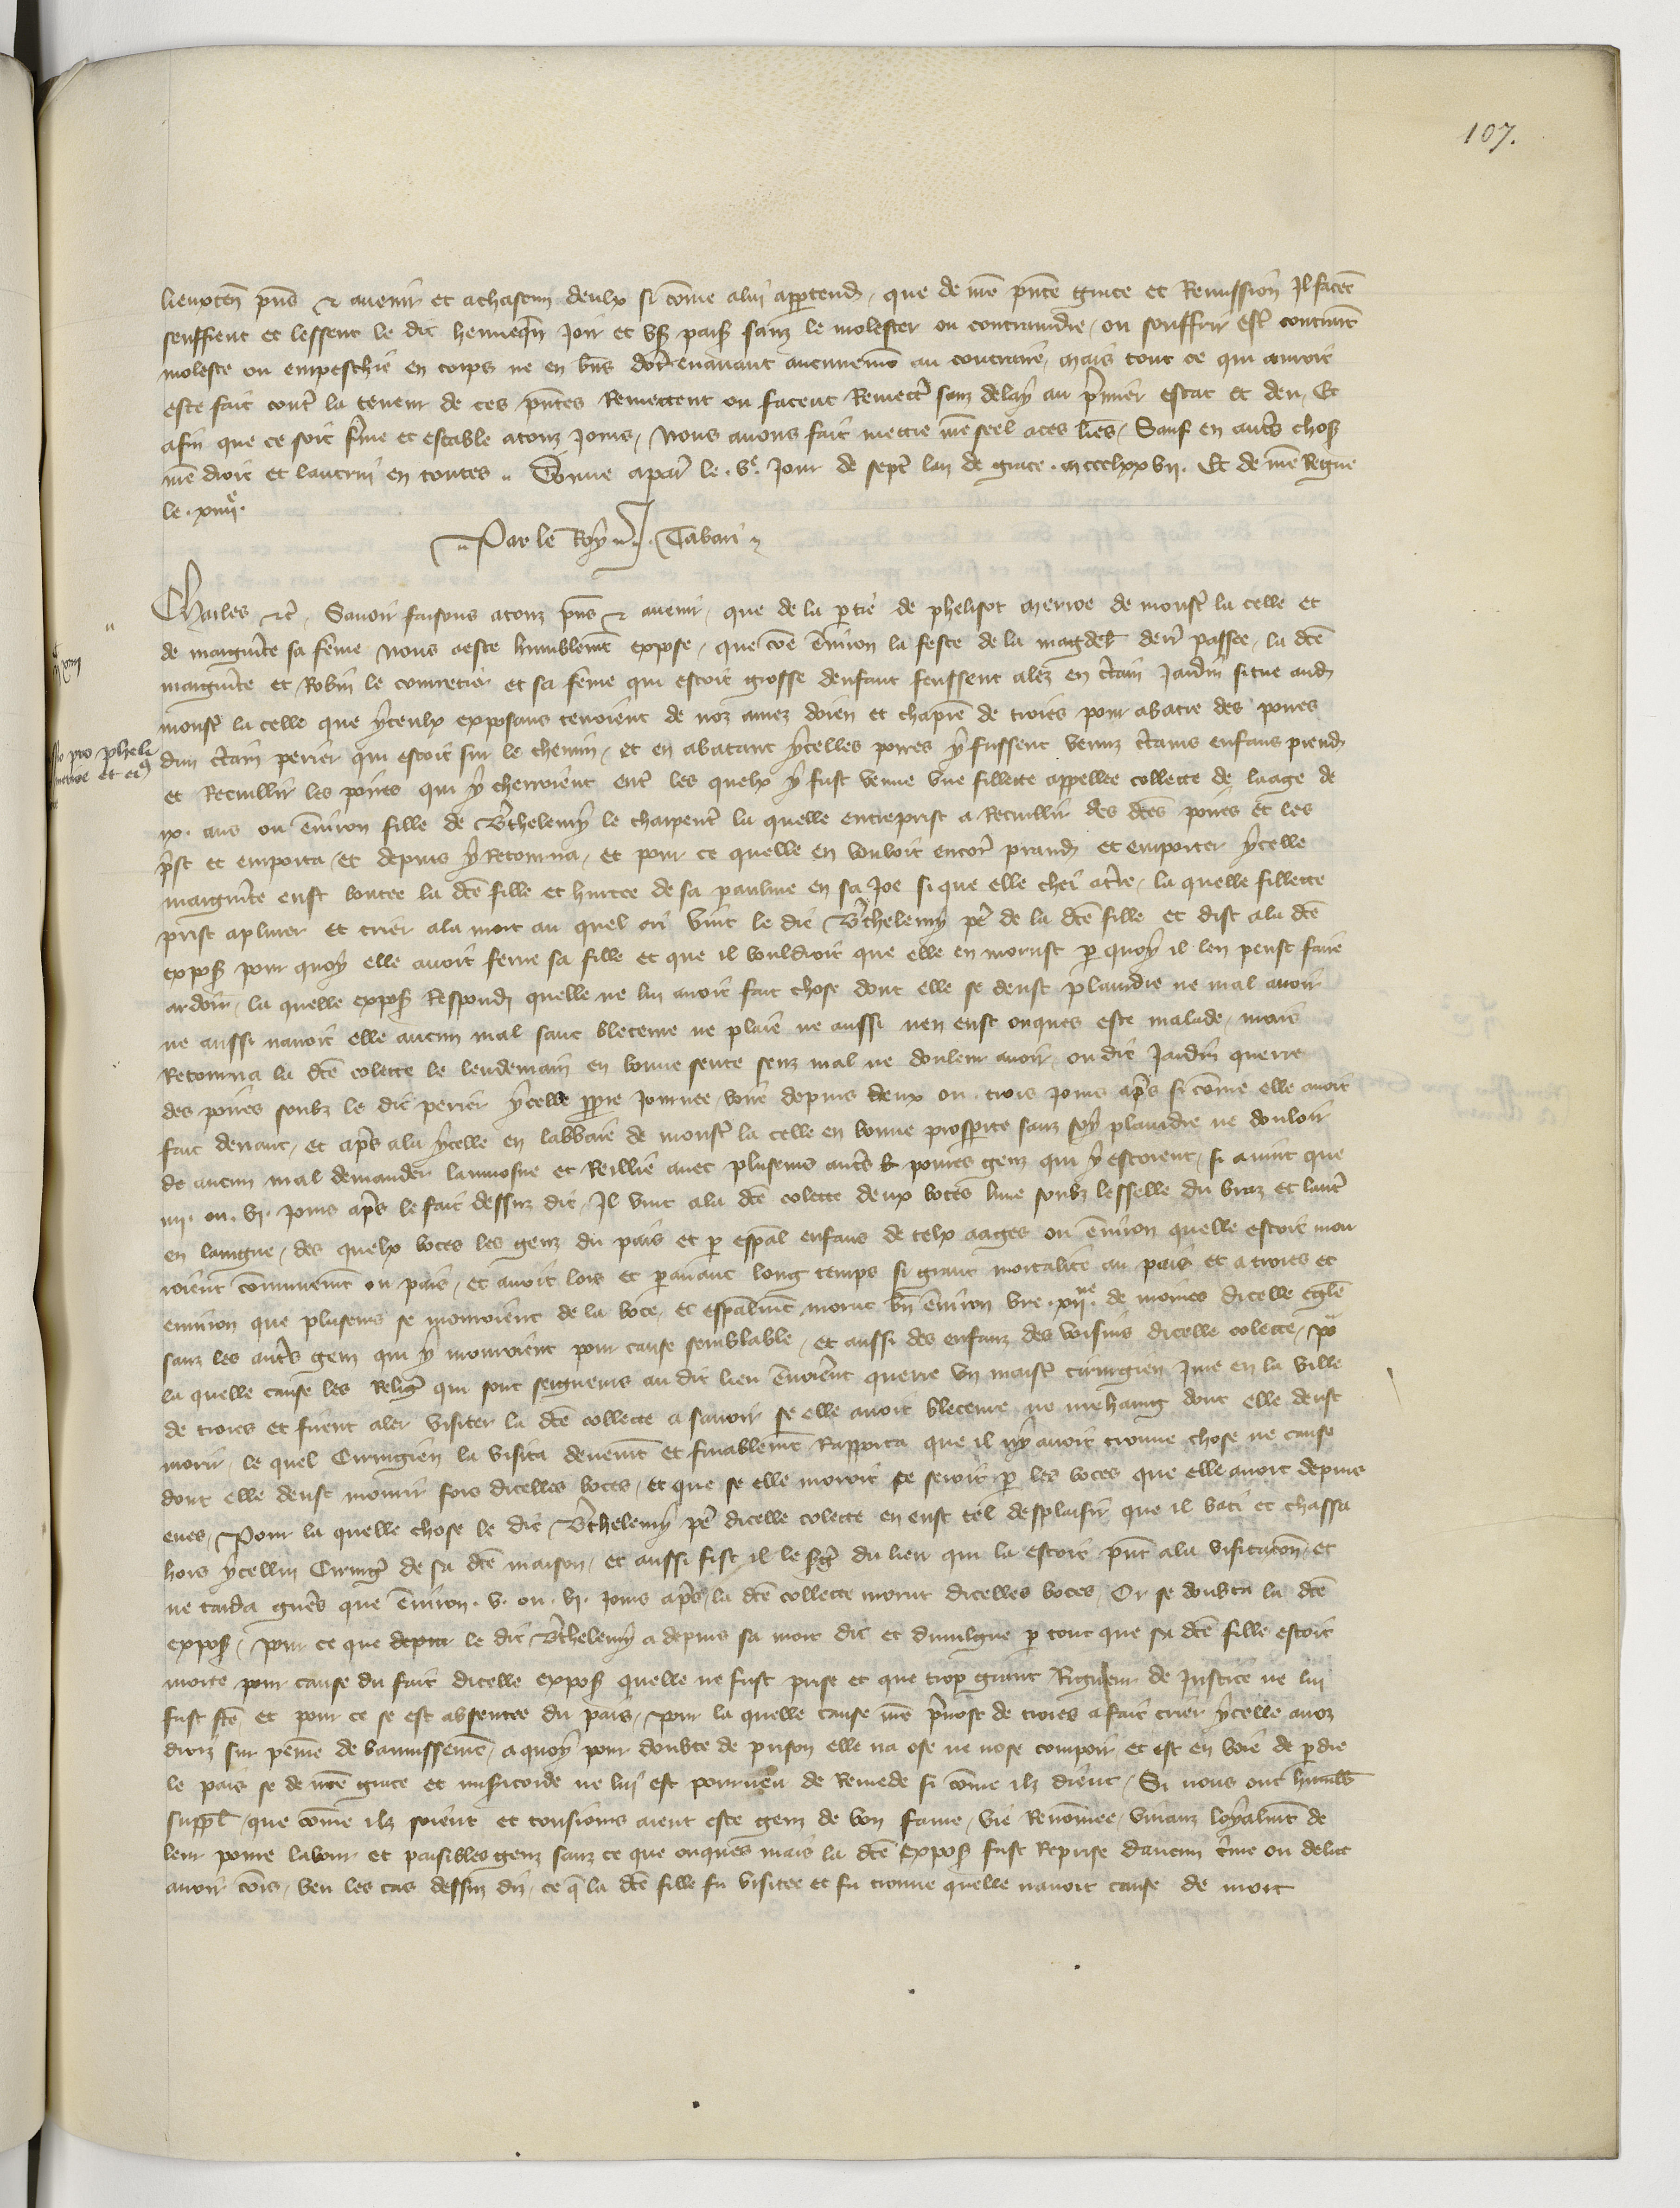 107.
lieuxten pns & avenir et achascun deulx si come alui appartend, que de nre pnte grace et Remission Il facet
seuffrent et lessent le dit hennequin Joir et us paisz sanz le molester ou contraindre, ou souffrir est contraint
moleste ou empeschie en corps ne en bns dores enavant aucunemt au contraire, mais tout ce qui auroit
este fait contr la teneur de ces pntes Remettent ou facent Remectr sanz delay au premier estat et deu, Et
afin que ce soit ferme et estable atouz Jours, Nous avons fait mettre nre seel aces lres, Sauf en autrs chos
nre droit et lautrui en toutes .. Donne a par le .ve. Jour de sept lan de grace .mccclxxvii. Et de nre Regne
le .xiiiie.
.. Par le Roy .. Tabari ..
Charles &c, Savoir faisons atouz pns & avenir, que de la partie de phelisot merroe de monstr la celle et
de marguerite sa feme nous aeste humblemt expose, que coe environ la feste de la magdel derr passee, la dce
marguerite et Robin le conreeur et sa feme qui estoit grosse denfant feussent alez en certain Jardin situe aud
monst la celle que yceulx exposans tenoient de noz amez doien et chapitre de troies pour abatre des poires
dun certain perier qui estoit sur le chemin, et en abatant ycelles poires y fussent venuz certains enfans prend
et Recuillir les poires qui y cherroient entr les quelx y fust venue une fillette appellee collette de laage de
ix. ans ou environ fille de Bthelemy le charpent la quelle entreprist a Recuillir des dces poires et les
prist et emporta, et depuis y Retourna, et pour ce quelle en vouloit encor prand et emporter ycelle
marguerite eust boutee la dce fille et hurtee de sa paulme en sa Joe si que elle chei aterre, la quelle fillette
prist aplurer et crier ala mort au quel cri vint le dit Bthelemy pe de la dce fille et dist ala dce
expos pour quoy elle avoit feru sa fille et que il vouldroit que elle en morust par quoy il len peust faire
ardoir, la quelle expos Respond quelle ne lui avoit fait chose dont elle se deust plaindre ne mal avoir
ne aussi navoit elle aucun mal sanc bleceure ne plaie ne aussi nen eust onques este malade, mais
Retourna la dce colette le lendemain en bonne sente senz mal ne douleur avoir, ou dit Jardin querre
des poires soubz le dit perier ycelle propre Journee, voire depuis deux ou trois Jours aprs si come elle avoit
fait devant, et aprs ala ycelle en labbaie de monst la celle en bonne prosperite sanz soy plaindre ne douloir
de aucun mal demander laumosne et Reillie avec pluseurs autrs poures genz qui y estoient, si avint que
iiii. ou vi. Jours aprs le fait dessuz dit, Il vint ala dce colette deux boces lune soubz lesselle du braz et lautr
en laingne, des quelx boces les genz du pais et par espal enfans de telx aages ou environ quelle estoit mou
roient communemt ou pais, et avoit lors et paravant long temps si grant mortalite au pais et a troies et
environ que pluseurs se mouroient de la boce, et espalmt morut bn environ une .xiine. de moines dicelle egle
sanz les autrs genz qui y mouroient pour cause semblable, et aussi des enfanz des voisins dicelle colette, po
la quelle cause les Religr qui sont seigneurs au dit lieu envoierent querre un maist cirurgien Jure en la ville
de troies et firent aler visiter la dce collecte a savoir se elle avoit bleceure ne mehaing dont elle deust
morir, le quel Cirurgien la visita deuemt et finablemt Rapporta que il ny avoit trouve chose ne cause
dont elle deust mourir fors dicelles boces, et que se elle moroit ce seroit par les boces que elle avoit depuis
eues, Pour la quelle chose le dit Bthelemy pe dicelle colette en eust tel desplaisir que il bati et chassa
hors ycellui Cirurgr de sa dce maison, et aussi fist il le sgr du lieu qui la estoit pnt ala visitacon, et
ne tarda guers que environ .v. ou .vi. Jours aprs la dce collecte morut dicelles boces, Or se doubta la dce
expos, pour ce que le dit Bthelemy a depuis sa mort dit et divulgue par tout que sa dce fille estoit
morte pour cause du fait dicelle expos quelle ne fust prise et que trop grant Rigueur de Justice ne lui
fust fce, et pour ce se est absentee du pais, pour la quelle cause nre prevost de troies a fait crier ycelle a noz
droiz sur peine de bannissemt, a quoy pour doubte de prison elle na ose ne nose comparoir et est en voie de perdre
le pais se de nre grace et misericorde ne lui est pourveu de Remede si come ilz dient, Si nous ont humblt
suppl, que come ilz soient et tousiours aient este genz de bon fame, vie Renommee, vivanz loyalmt de
leur poure labour et paisibles genz sanz ce que onques mais la dce expos fust Reprise daucun crime ou delit
avoir comis, veu les cas dessuz diz, ce que la dce fille fu visitee et fu trouve quelle navoit cause de mort
pro pheli
merroe et eiq